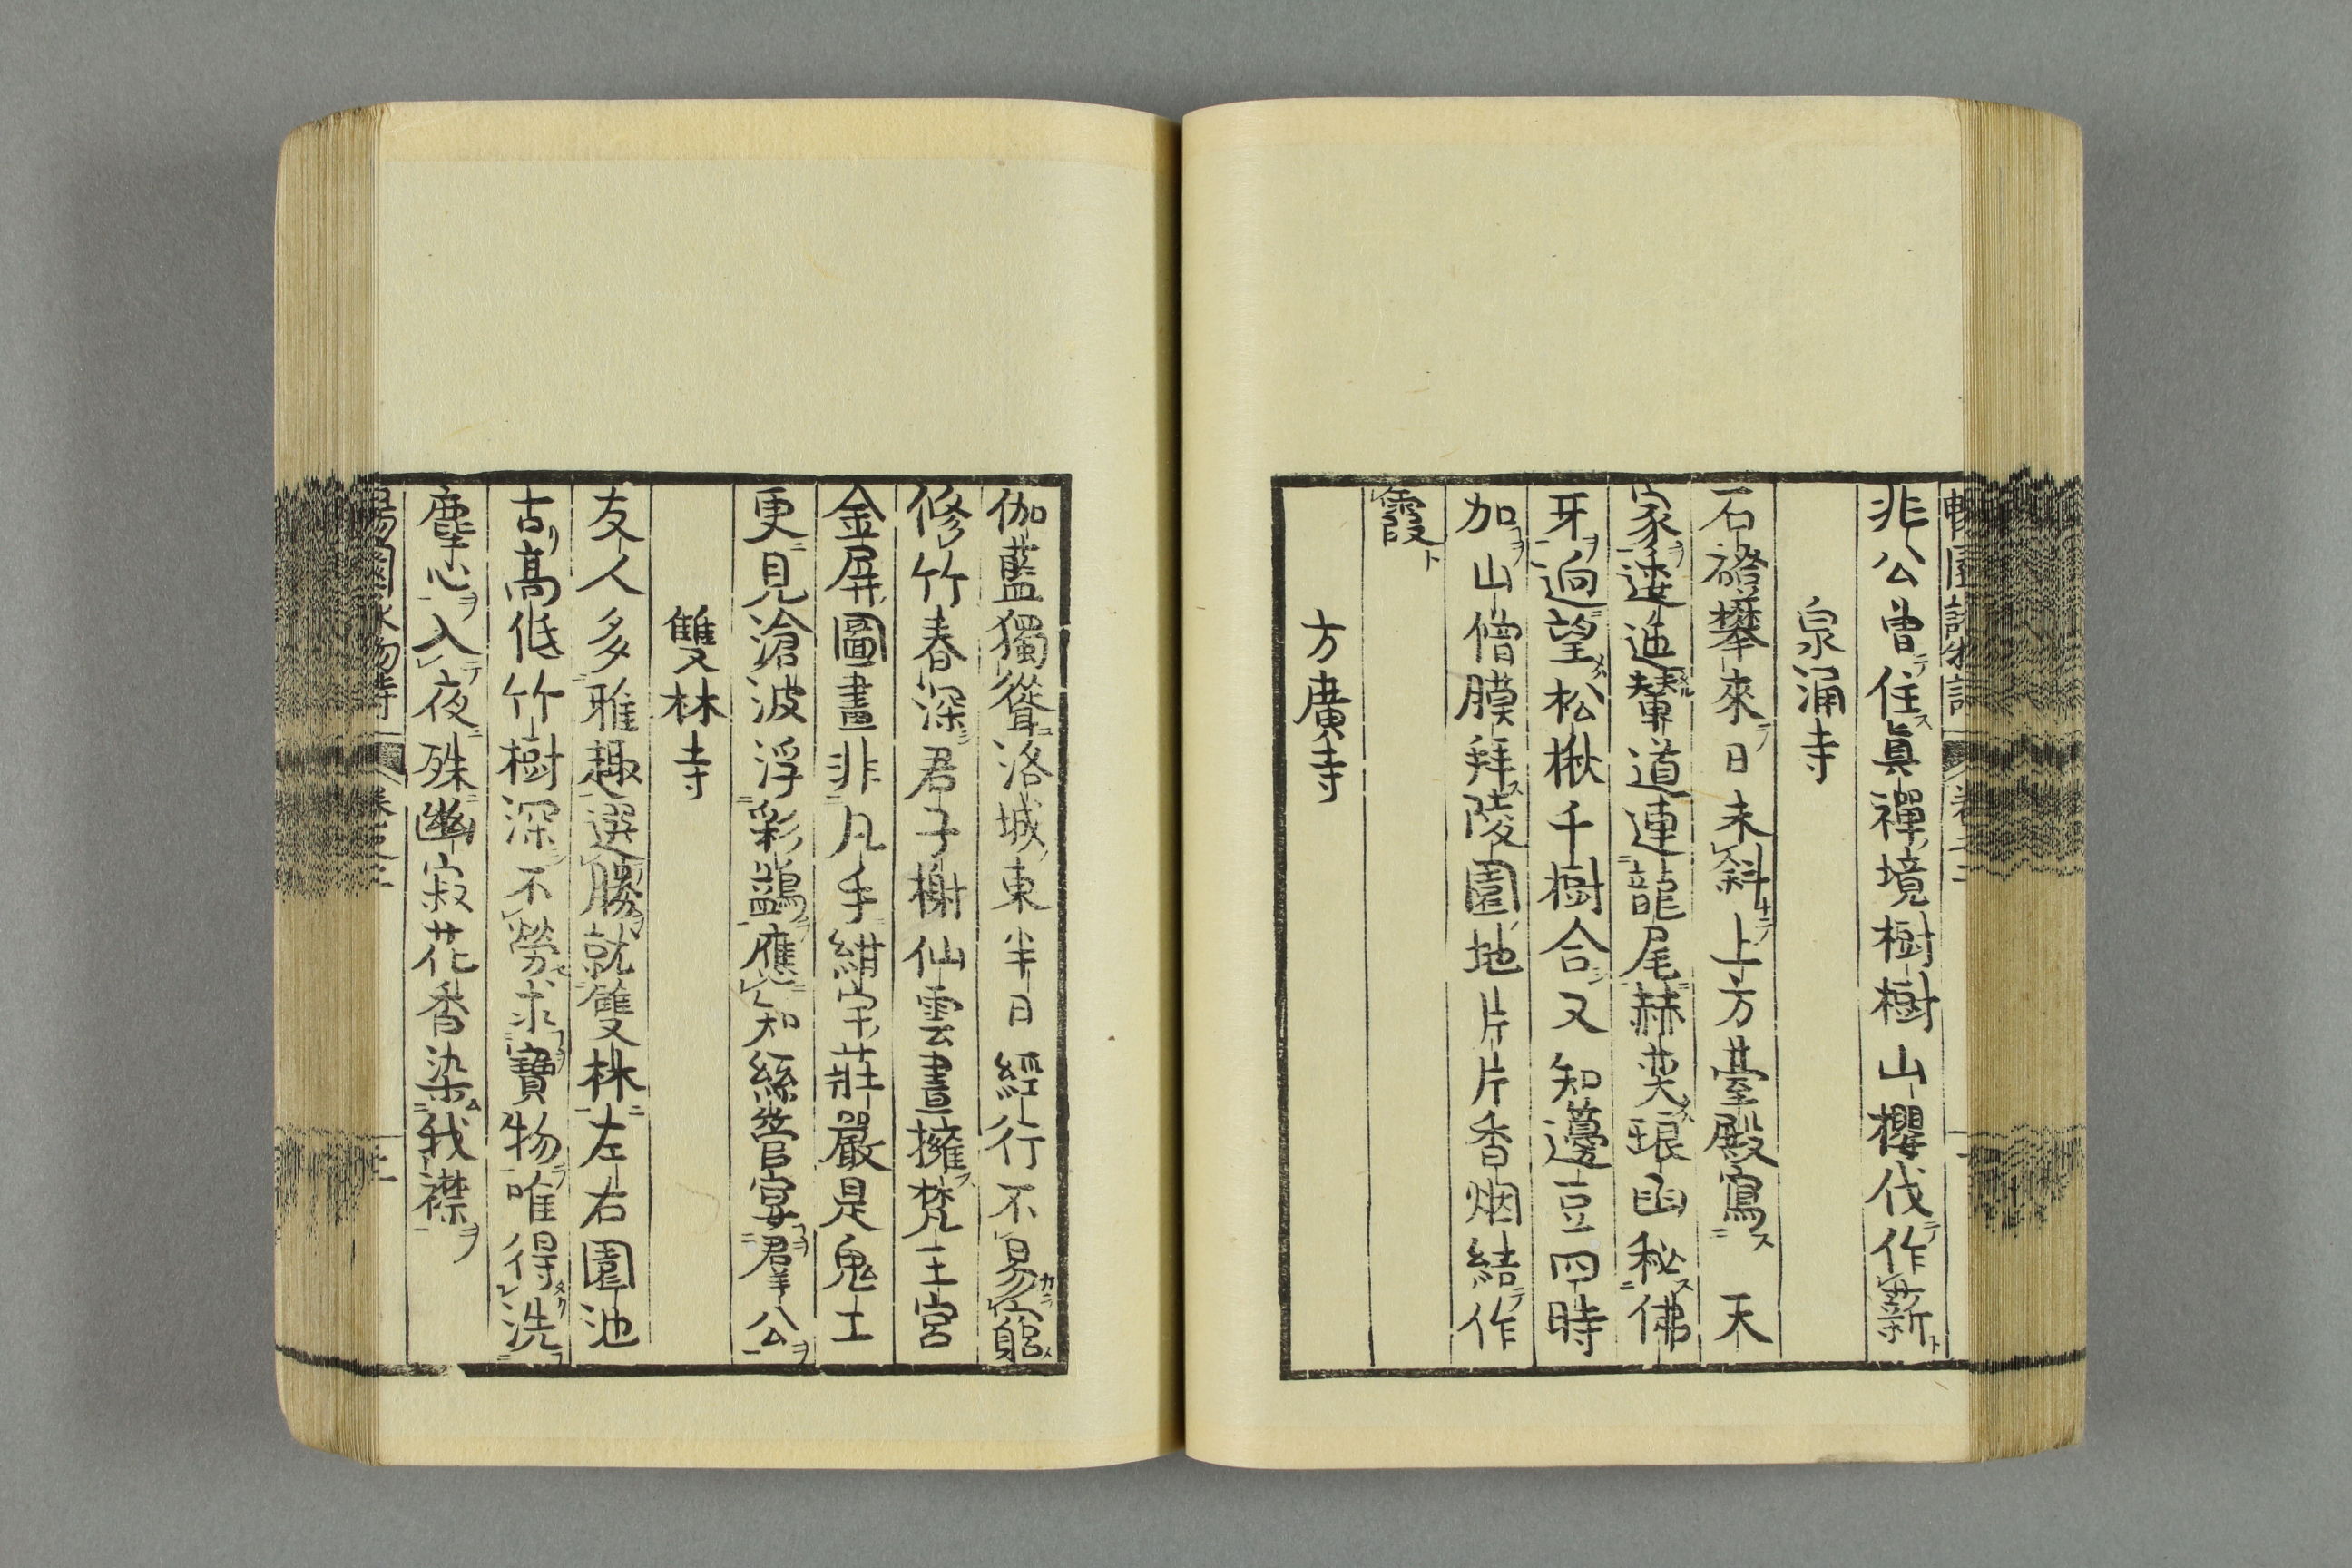 非公曽住眞禪境樹樹山櫻伐作薪
泉涌寺
石磴攀來日未斜上方臺殿寫天
家逶迤輦道連龍尾赫奕琅函秘佛
牙逈望松楸千樹合又知籩豆四時
加山僧膜拜陵園地片片香烟結作
霞
方廣寺
伽藍獨聳洛城東半日經行不易窮
修竹春深君子榭仙雲晝擁梵王宮
金屏圖畫非凡手紺宇莊嚴是鬼工
更見滄波浮彩鷁應知絲管宴羣公
雙林寺
友人多雅趣選勝就雙林左右園池
古高低竹樹深不勞求寶物唯得洗
塵心入夜殊幽寂花香染我襟